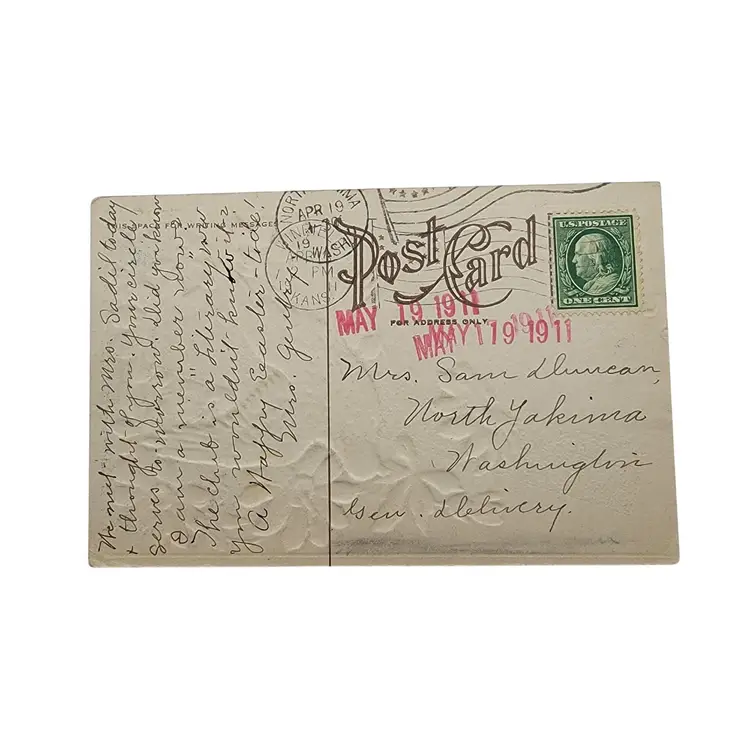 THIS SPACE FOR WRITING MESSAGES
We met with Mrs. Sadil today
& thought of you. Your circle
serves to-morrow. Did you know
I am a member now.
The club is a "literary" now
you wouldn't know it.
A Happy Easter-tide!
Mrs. Guthrey
NORTH YAKIMA
APR 19
WASH.
APR
PM
KANS.
Post Card
U.S. POSTAGE
ONE CENT
MAY 19 1911
FOR ADDRESS ONLY
MAY 19 1911
Mrs. Sam Duncan,
North Yakima
Washington
Gen. Delivery.